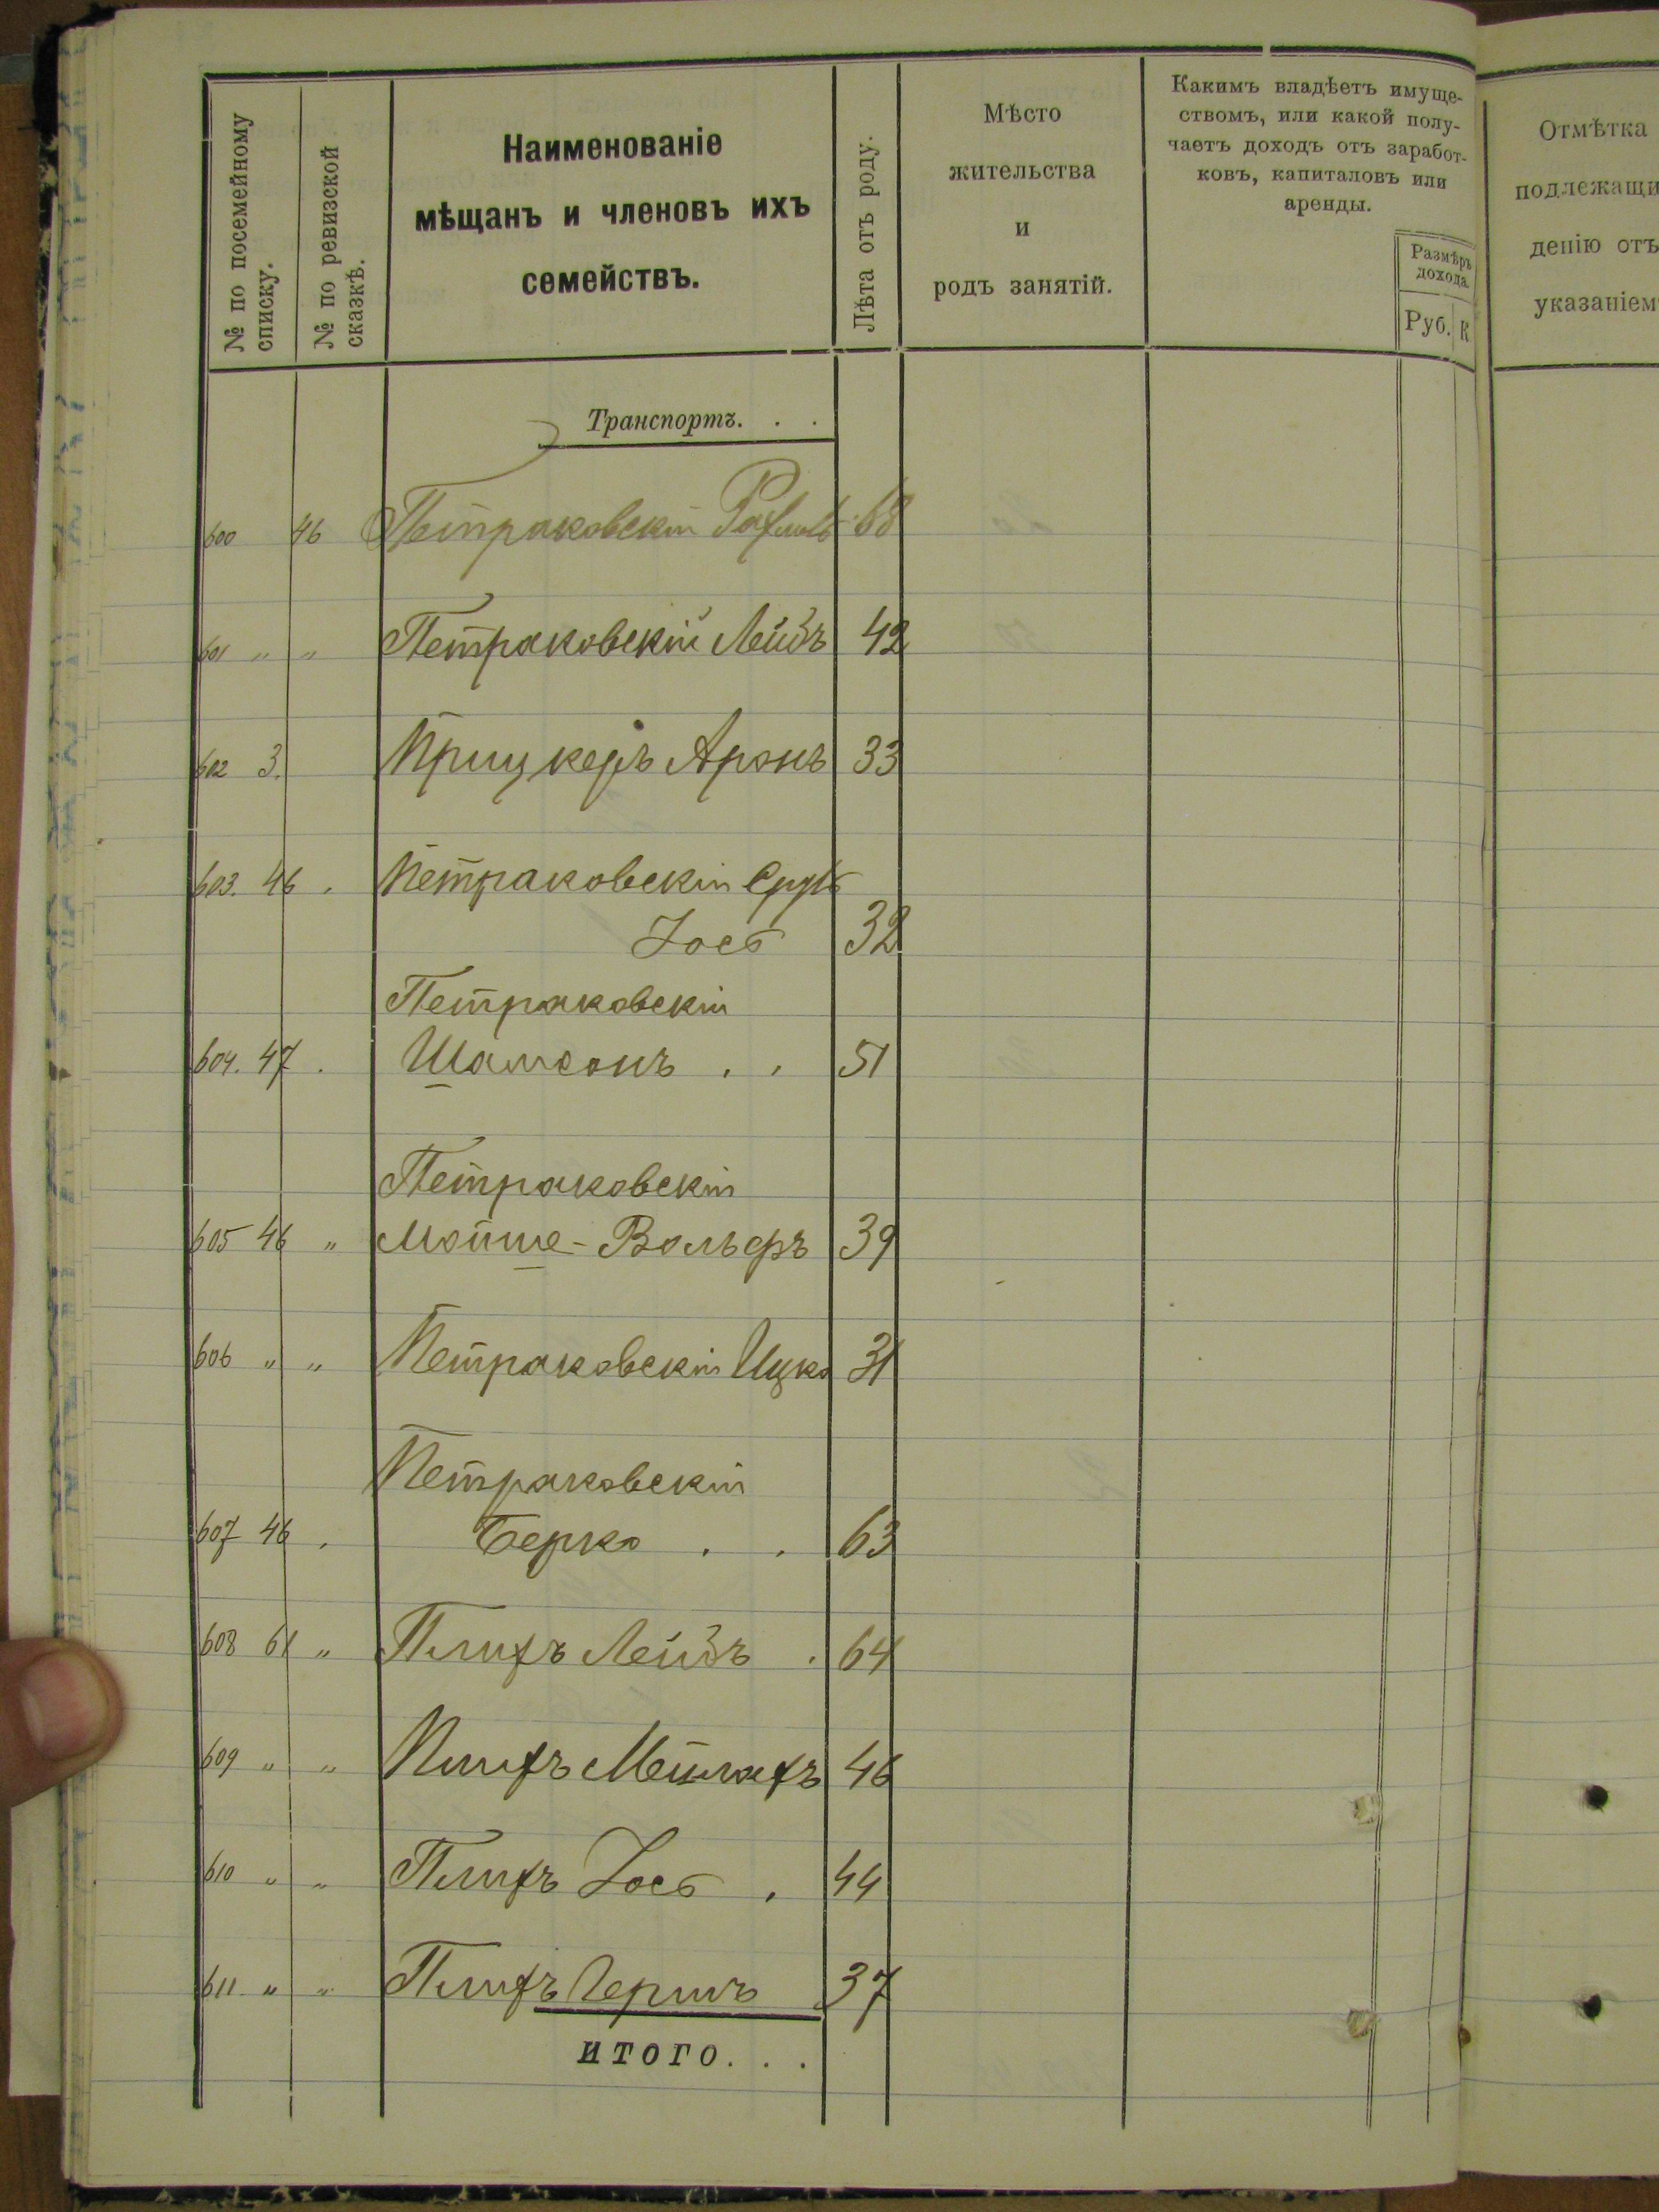 № по посемейному
списку.
№ по ревизской
сказкѣ.
Наименованіе
мѣщанъ и членовъ ихъ
семействъ.
Лѣта отъ роду.
Мѣсто
жительства
и
родъ занятій.
Какимъ владѣетъ имуще-
ствомъ, или какой полу-
чаетъ доходъ отъ заработ-
ковъ, капиталовъ или
аренды.
Размѣръ
дохода.
Руб. К
Отмѣтка
подлежащи
денію отъ
указаніем
Транспортъ. . .
600 46 Петраковскій 68
601 " " Петраковскій Лейбъ 42
602 3. Прицкеръ Аронъ 33
603. 46 . Петраковскій Сруль
Іось 32
Петраковскій
604. 47 . Шамсонъ . . 51
Петраковскій
605 46 " Мойше-Вольфъ 39
606 " " Петраковскій Ицко 31
Петраковскій
607 46 . Берко . . 63
608 61 " Плихъ Лейбъ . 64
609 " " Плихъ Мейлахъ 46
610 " " Плихъ Іось . 44
611. " " Плихъ Гершъ 37
ИТОГО. . .